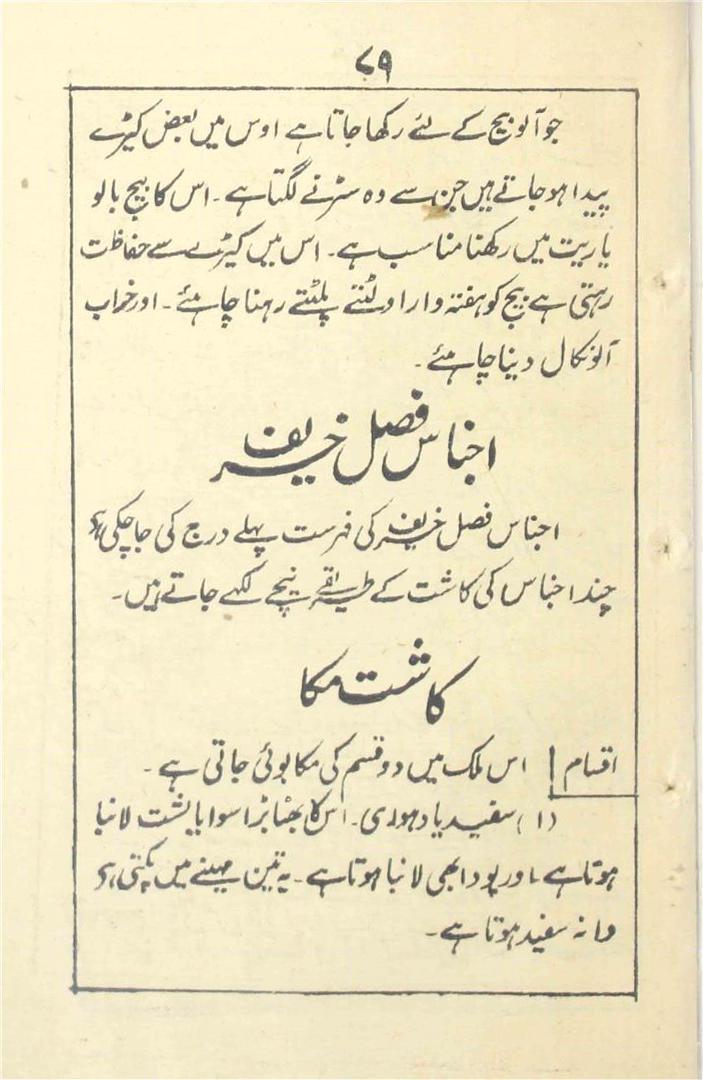 ۷۹
جو آلو بیج کے لئے رکھا جاتا ہے اوس میں بعض کیڑے
پیدا ہو جاتے ہیں جن سے وہ سڑنے لگتا ہے۔ اس کا بیج بالو
یا ریت میں رکھنا مناسب ہے۔ اس میں کیڑے سے حفاظت
رہتی ہے بیج کو ہفتہ وار اولٹتے پلٹتے رہنا چاہئے۔ اور خراب
آلو نکال دینا چاہئے۔
اجناس فصل خریف
اجناس فصل خریف کی فہرست پہلے درج کی جا چکی ہے
چند اجناس کی کاشت کے طریقے نیچے لکھے جاتے ہیں۔
کاشت مکا
اقسام | اس ملک میں دو قسم کی مکا بوئی جاتی ہے۔
(۱) سفید یا دہوری۔ اس کا بھٹا بڑا سوا بالشت لانبا
ہوتا ہے اور پودا بھی لانبا ہوتا ہے۔ یہ تین مہینے میں پکتی ہے
دانہ سفید ہوتا ہے۔